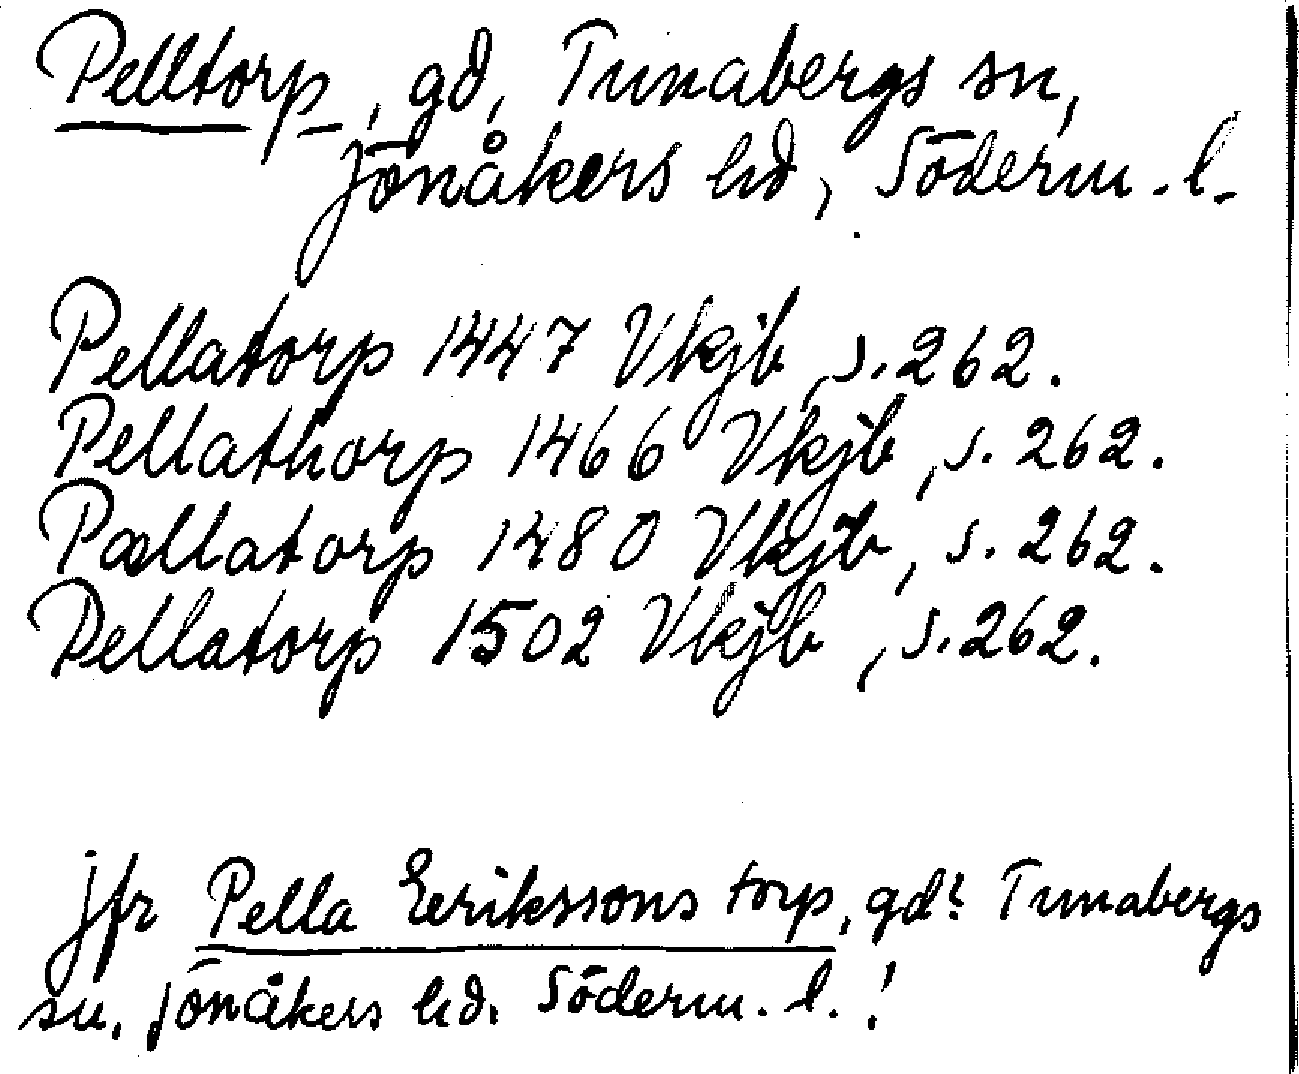 Pelltorp, gd, Tunabergs sn,
Jönåkers hd, Söderm. l.
Pellatorp 1447 Vkjb, s. 262.
Pellathorp 1466 Vkjb, s. 262.
Pællatorp 1480 Vkjb, s. 262.
Pellatorp 1502 Vkjb, s. 262.
jfr Pella Eerikssons torp, gd? Tunabergs
sn. Jönåkers hd. Söderm. l. !